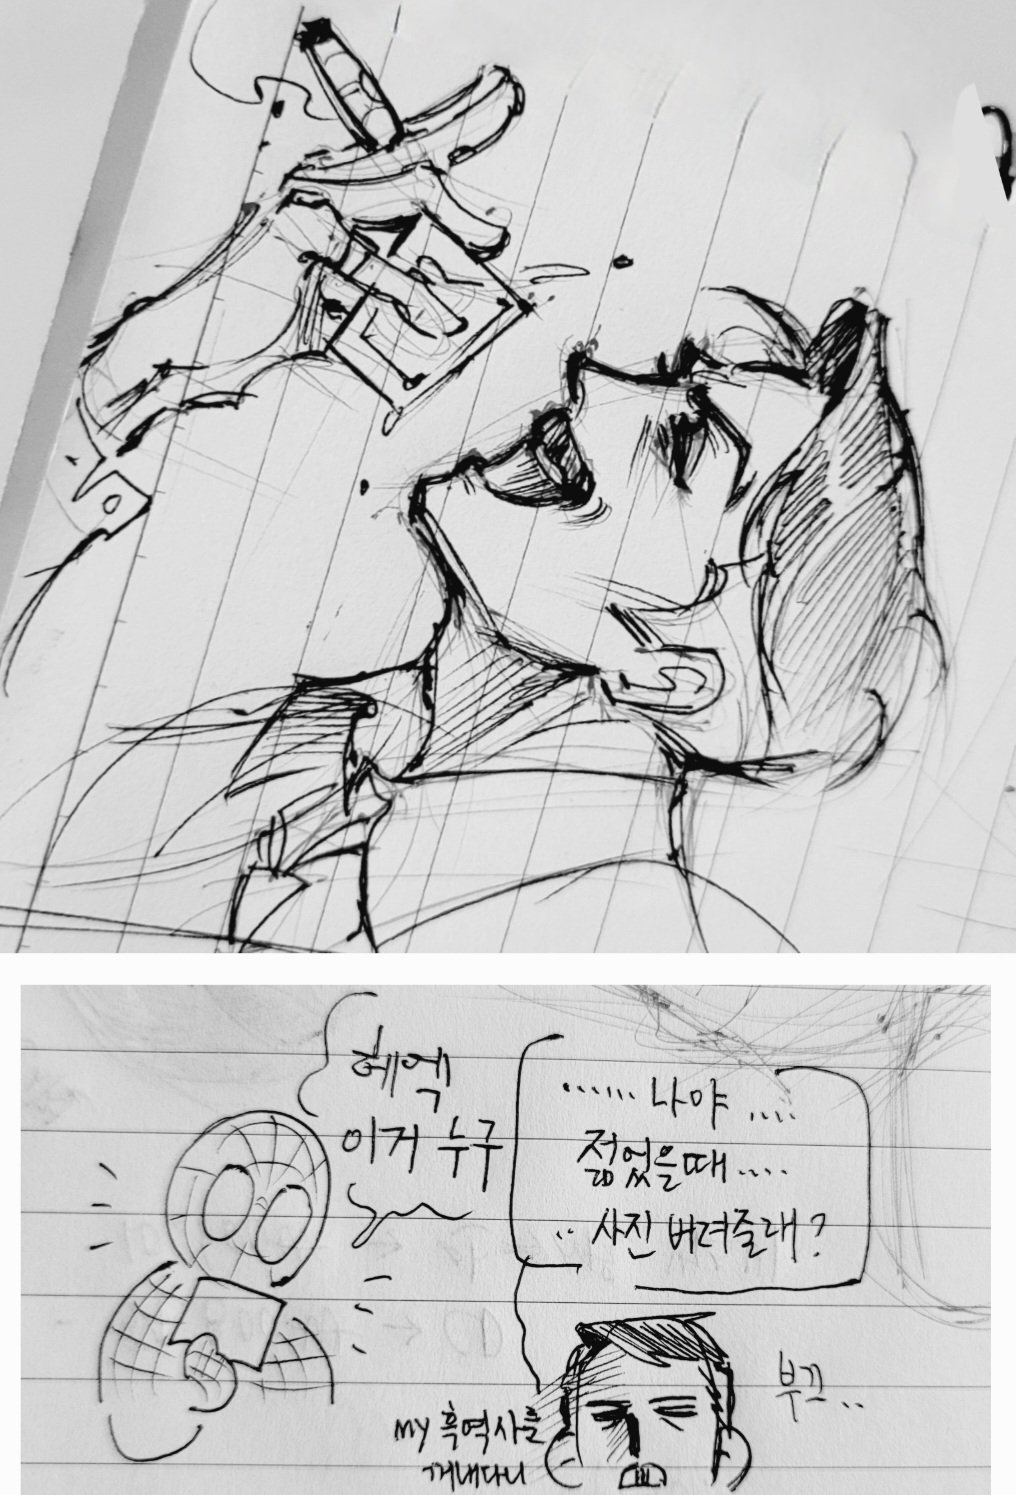 헤엑
이거 누구
...... 나야 ....
젊었을때....
.. 사진 버려줄래?
부끄..
my 흑역사를
꺼내다니